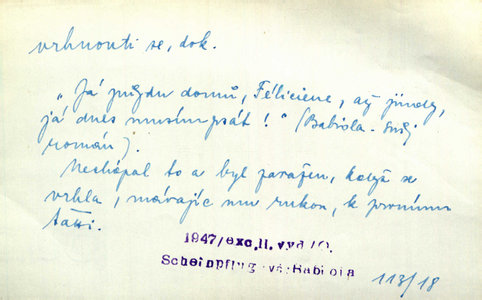 vrhnouti se, dok.
„Já půjdu domů, Féliciene, až jindy,
já dnes musím psát!" (Babiola - svůj
román).
Nechápal to a byl poražen, když se
vrhla, mávajíc mu rukou, k prvnímu
taxi.
1947/exc. II. vyd/O.
Scheinpflug.vá: Babiola
113/18